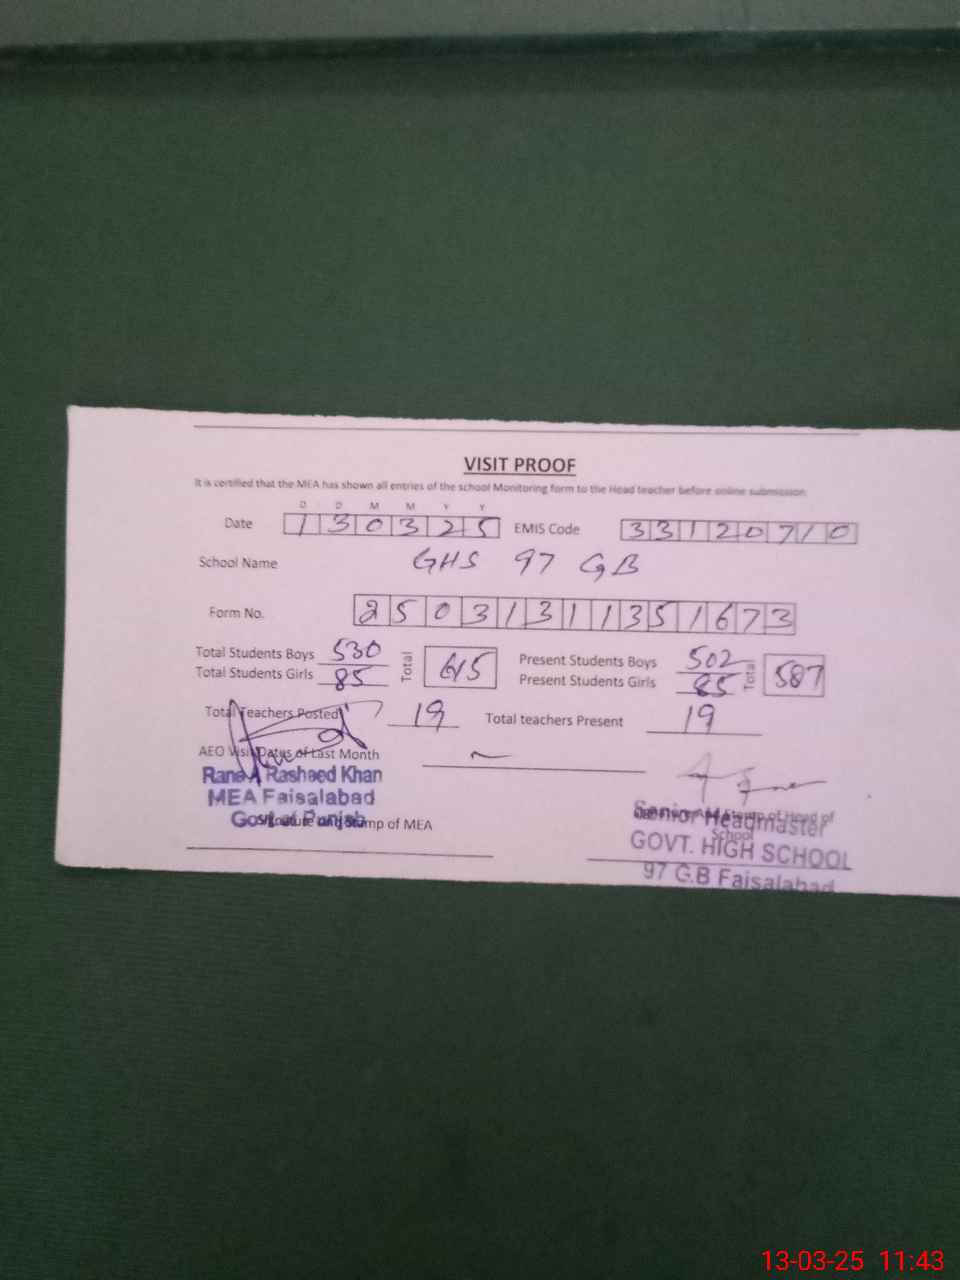 VISIT PROOF
It is certified that the MEA has shown all entries of the school Monitoring form to the Head teacher before online submission
D D M M Y Y
Date 130325 EMIS Code 33120710
School Name GHS 97 GB
Form No. 25031311351673
Total Students Boys 530 Total 615 Present Students Boys 502 Total 587
Total Students Girls 85 Present Students Girls 85
Total Teachers Posted 19 Total teachers Present 19
AEO Visit Dates of Last Month ~
Rana A Rasheed Khan
MEA Faisalabad
Govt of Punjab
Signature and Stamp of MEA
Stamp of Head of
School
Senior Headmaster
GOVT. HIGH SCHOOL
97 G.B Faisalabad
13-03-25 11:43